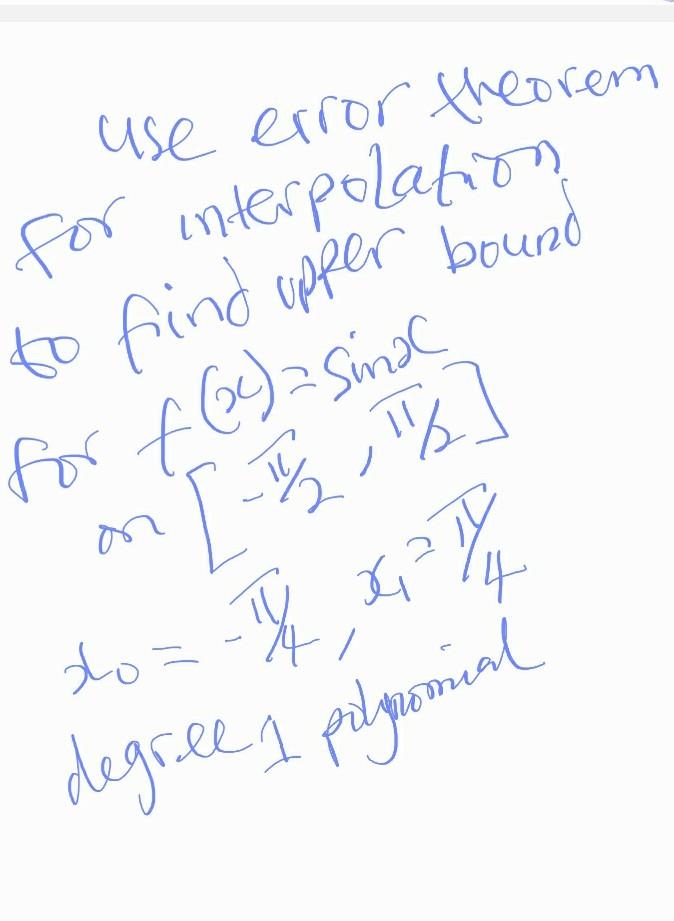 use error theorem
for interpolation
to find upper bound
for f(x) = sinx
on [-π/2, π/2]
x₀ = -π/4, x₁ = π/4
degree 1 polynomial